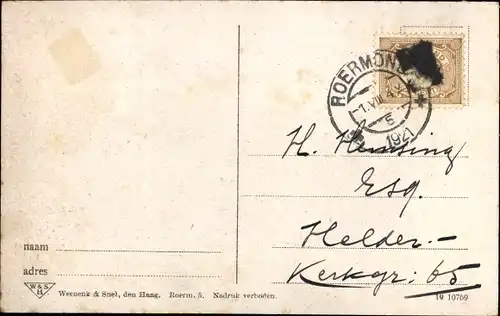 ROERMOND
1.VIII
5
1921
H. Hensing
Esq.
Helder.-
Kerkgr: 65
naam
adres
W&S
H
Weenenk & Snel, den Haag. Roerm. 5. Nadruk verboden.
19 10769